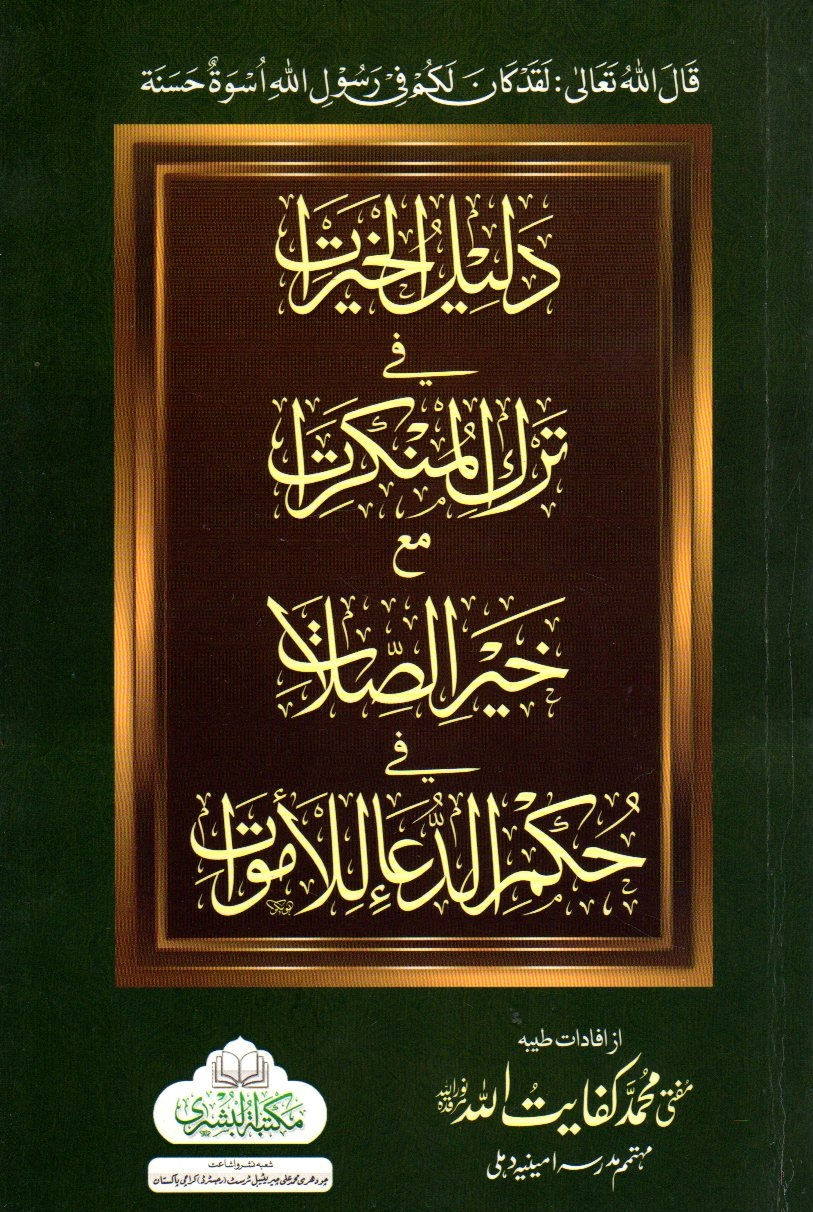 قَالَ اللهُ تَعَالٰی: لَقَدْ كَانَ لَكُمْ فِیْ رَسُوْلِ اللهِ اُسْوَةٌ حَسَنَة
دَلِیْلُ الْخَیْرَات
فِي
تَرْكِ الْمُنْكَرَات
مع
خَیْرِ الصِّلَات
فِي
حُكْمِ الدُّعَاءِ لِلْأَمْوَات
از افادات طیبہ
مفتی محمد کفایت اللہ نور اللہ مرقدہ
مہتمم مدرسہ امینیہ دہلی
مکتبۃ البشریٰ
شعبہ نشر و اشاعت
چودھری محمد علی چیریٹیبل ٹرسٹ (رجسٹرڈ) کراچی پاکستان